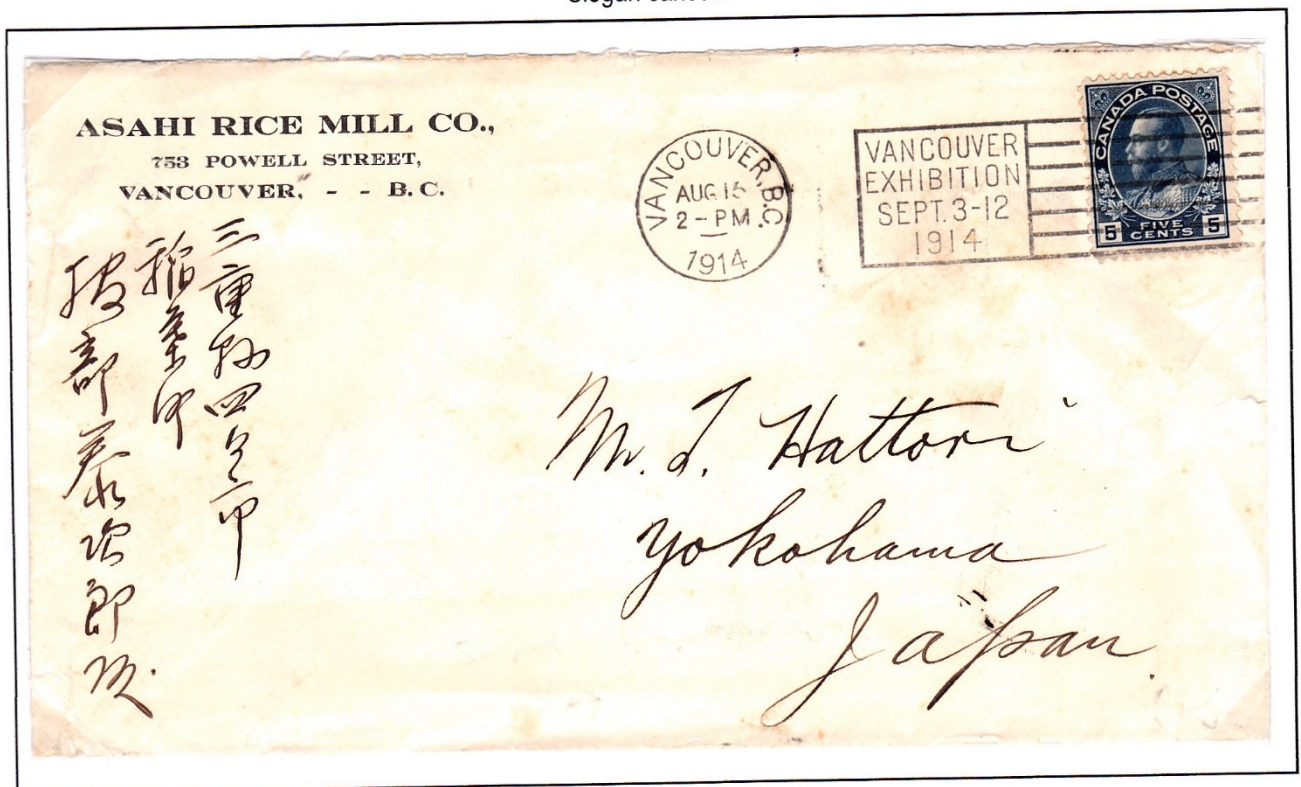 Slogan
ASAHI RICE MILL CO.,
753 POWELL STREET,
VANCOUVER, - - B. C.
VANCOUVER, B.C.
AUG 15
2 - PM
1914
VANCOUVER
EXHIBITION
SEPT. 3-12
1914
CANADA POSTAGE
5 FIVE CENTS 5
三重縣四日市
稲葉町
服部泰次郎
Mr. T. Hattori
Yokohama
Japan.